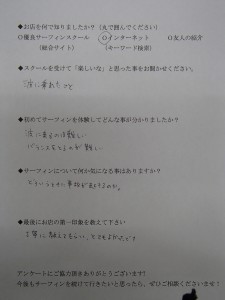 ◆お店を何で知りましたか？（丸で囲んでください）
○優良サーフィンスクール ○インターネット ○友人の紹介
（総合サイト） （キーワード検索）
◆スクールを受けて「楽しいな」と思った事をお聞かせください。
波に乗れたこと
◆初めてサーフィンを体験してどんな事が分かりましたか？
波に乗るのは難しい
バランスをとるのが難しい
◆サーフィンについて何か気になる事はありますか？
どういうときに事故が起こるのか。
◆最後にお店の第一印象を教えて下さい
丁寧に教えてもらい、とてもよかったです
アンケートにご協力頂きありがとうございます！
今後もサーフィンを続けて行きたいと思ったら、ぜひご相談くださいませ！